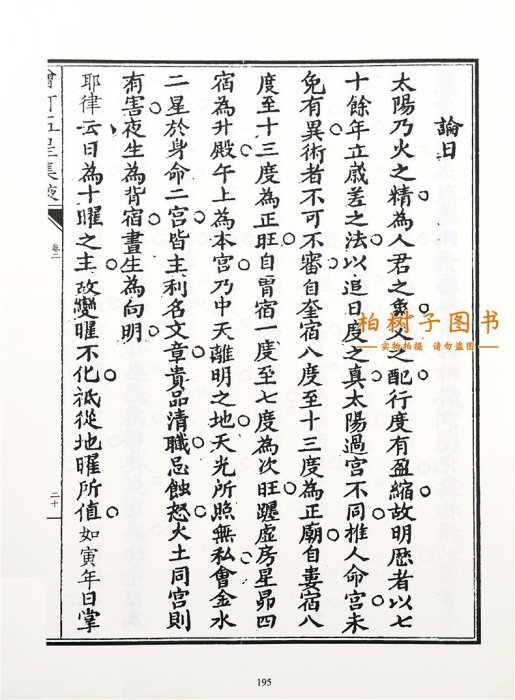 論日
太陽乃火之精為人君之象火之配行度有盈縮故明歴者以七
十餘年立歲差之法以追日度之真太陽過宮不同推人命宮未
免有異術者不可不審自奎宿八度至十三度為正廟自婁宿八
度至十三度為正旺自胃宿一度至七度為次旺躔虛房星昴四
宿為升殿午上為本宮乃中天離明之地天光所照無私會金水
二星於身命二宮皆主利名文章貴品清職忌蝕怒火土同宮則
有害夜生為背宿晝生為向明
耶律云日為十曜之主改變曜不化祇從地曜所值如寅年日掌
卷二
二十
柏树子图书
实物拍摄 请勿盗图
195